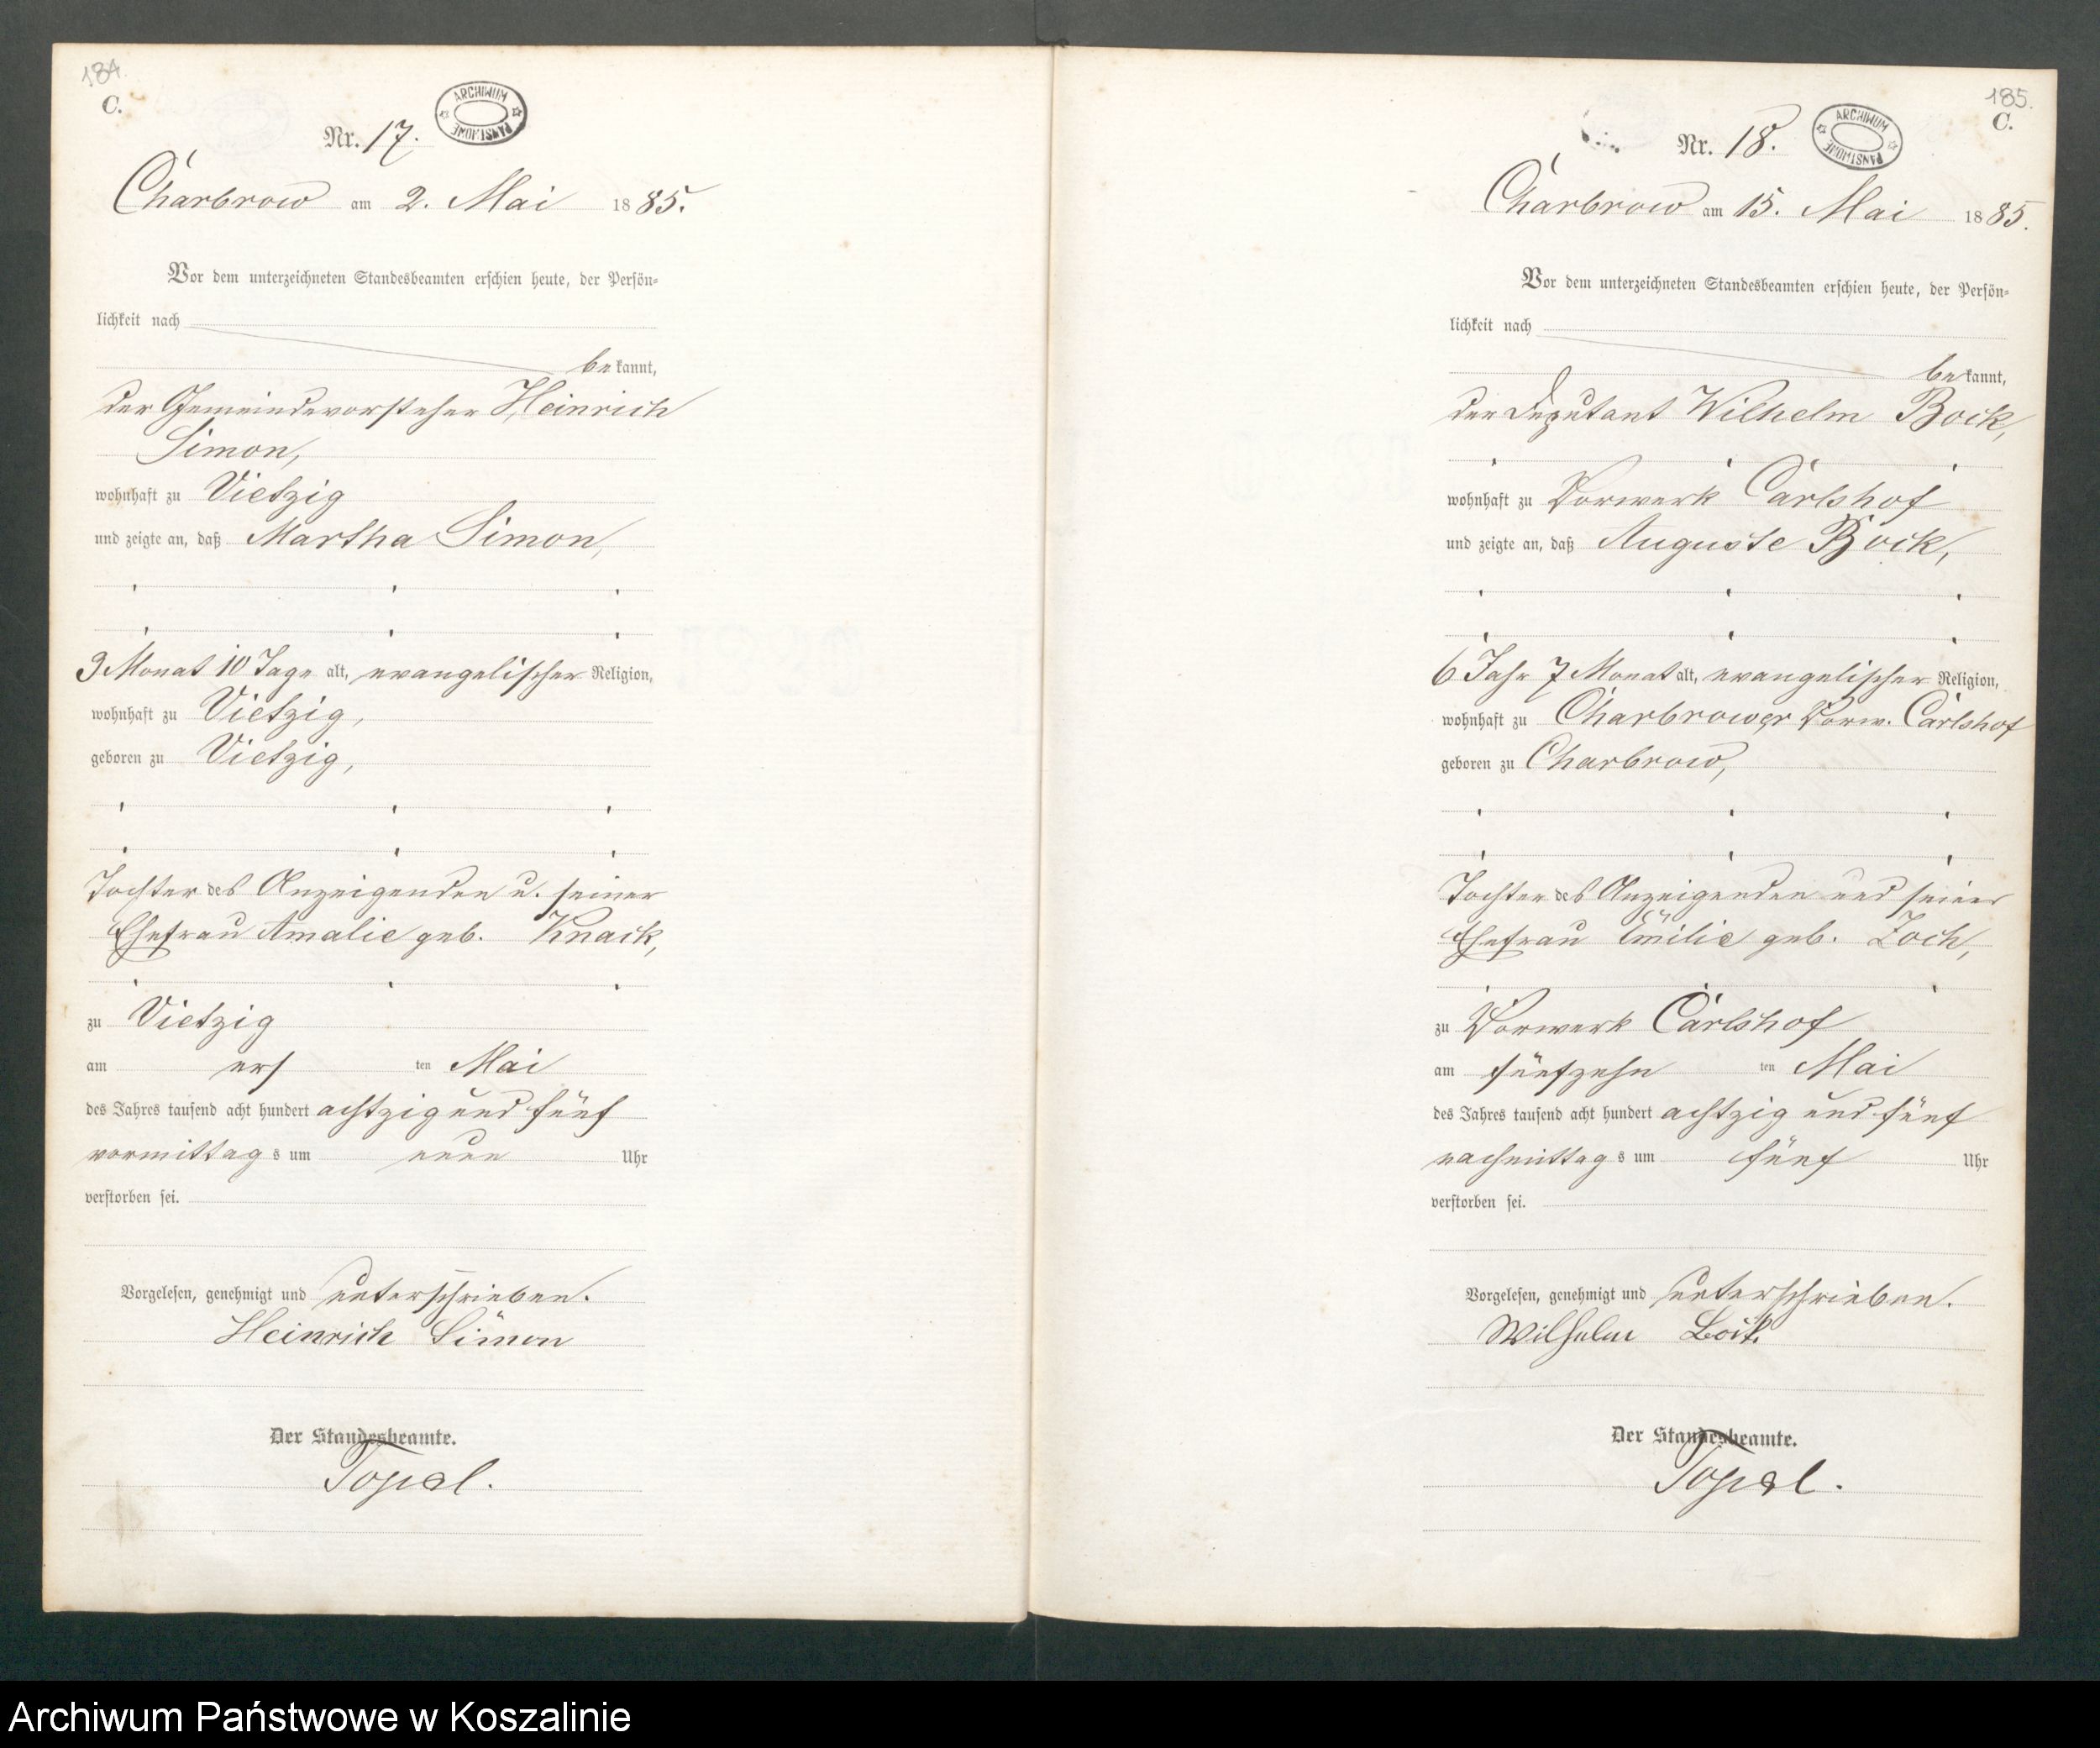 184.
C.
ARCHIWUM PAŃSTWOWE
Nr. 17.
Charbrow am 2. Mai 1885.
Vor dem unterzeichneten Standesbeamten erschien heute, der Persön-
lichkeit nach
bekannt,
der Gemeindevorsteher Heinrich
Simon,
wohnhaft zu Vietzig
und zeigte an, daß Martha Simon,
3 Monat 10 Tage alt, evangelischer Religion,
wohnhaft zu Vietzig,
geboren zu Vietzig,
Tochter des Anzeigenden u. seiner
Ehefrau Amalie geb. Knack,
zu Vietzig
am ersten Mai
des Jahres tausend acht hundert achtzig und fünf
vormittags um neun Uhr
verstorben sei.
Vorgelesen, genehmigt und unterschrieben.
Heinrich Simon
Der Standesbeamte.
Topel.
185.
C.
ARCHIWUM PAŃSTWOWE
Nr. 18.
Charbrow am 15. Mai 1885.
Vor dem unterzeichneten Standesbeamten erschien heute, der Persön-
lichkeit nach
bekannt,
der Deputant Wilhelm Bock,
wohnhaft zu Vorwerk Carlshof
und zeigte an, daß Auguste Bock,
6 Jahr 7 Monat alt, evangelischer Religion,
wohnhaft zu Charbrower Vorw. Carlshof
geboren zu Charbrow,
Tochter des Anzeigenden und seiner
Ehefrau Emilie geb. Zoch,
zu Vorwerk Carlshof
am fünfzehnten Mai
des Jahres tausend acht hundert achtzig und fünf
nachmittags um fünf Uhr
verstorben sei.
Vorgelesen, genehmigt und unterschrieben.
Wilhelm Bock.
Der Standesbeamte.
Topel.
Archiwum Państwowe w Koszalinie